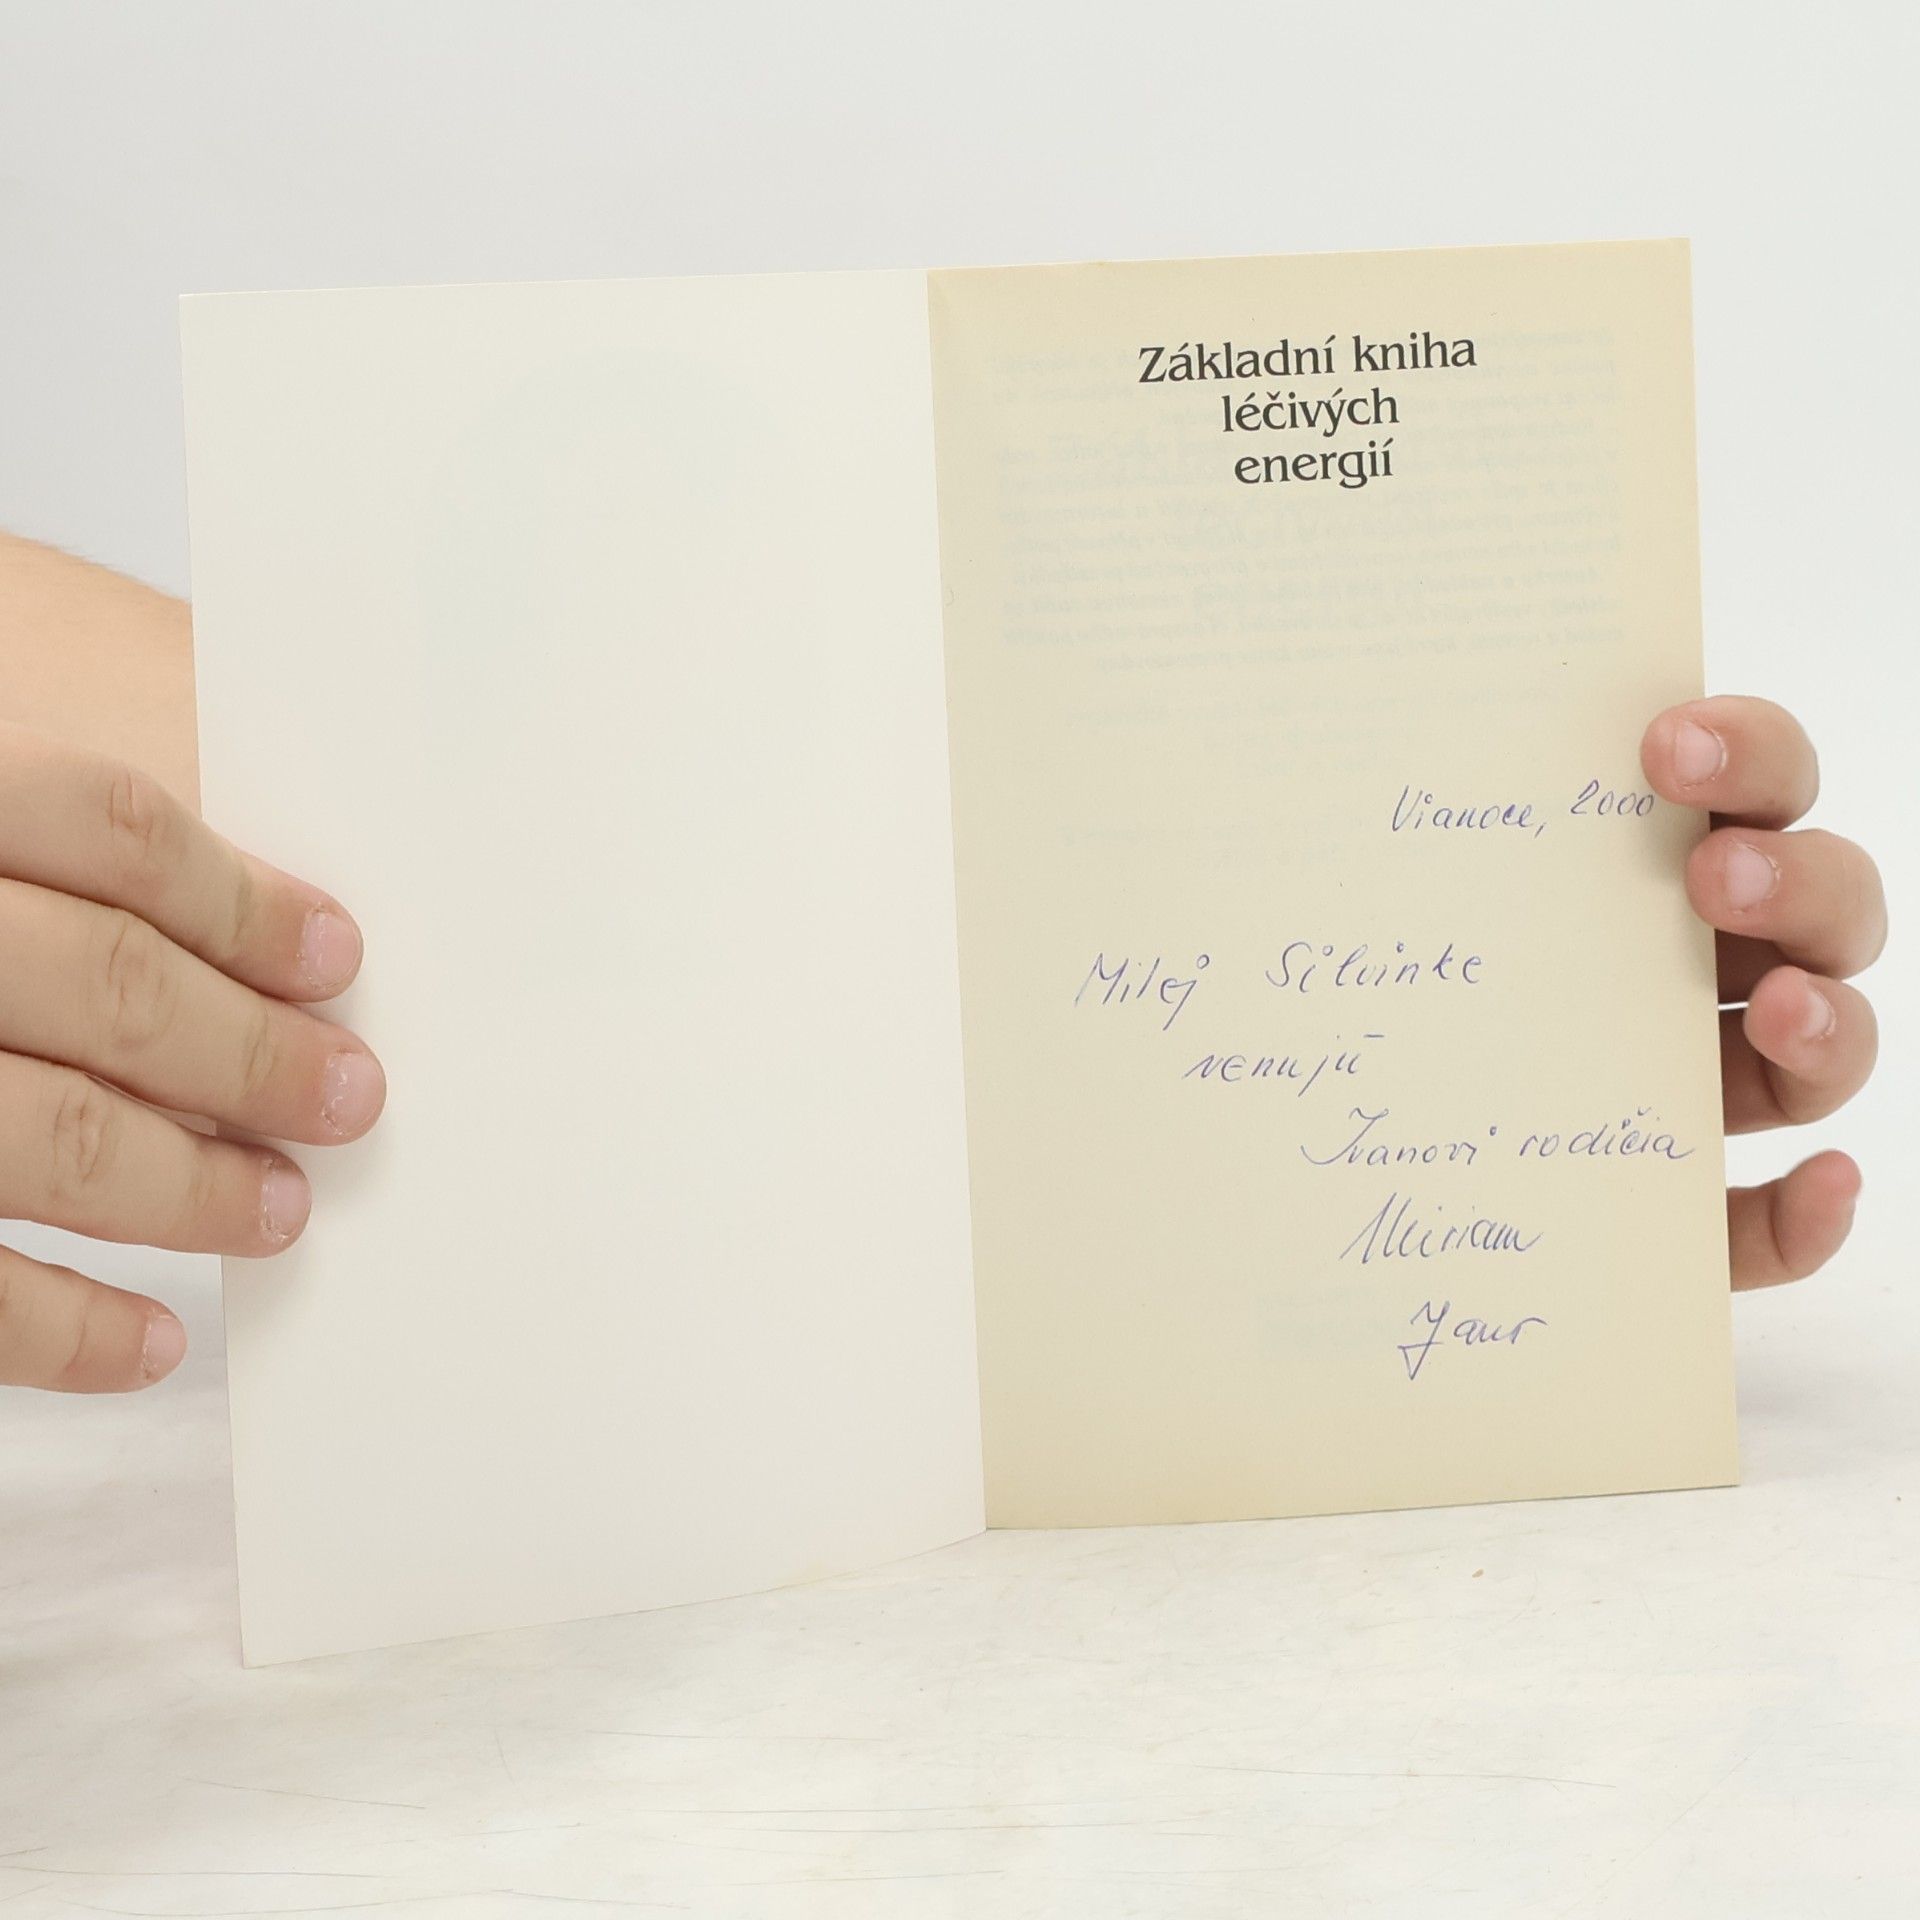 Základní kniha
léčivých
energií
Vianoce, 2000
Milej Silvinke
venujú
Ivanovi rodičia
Miriam